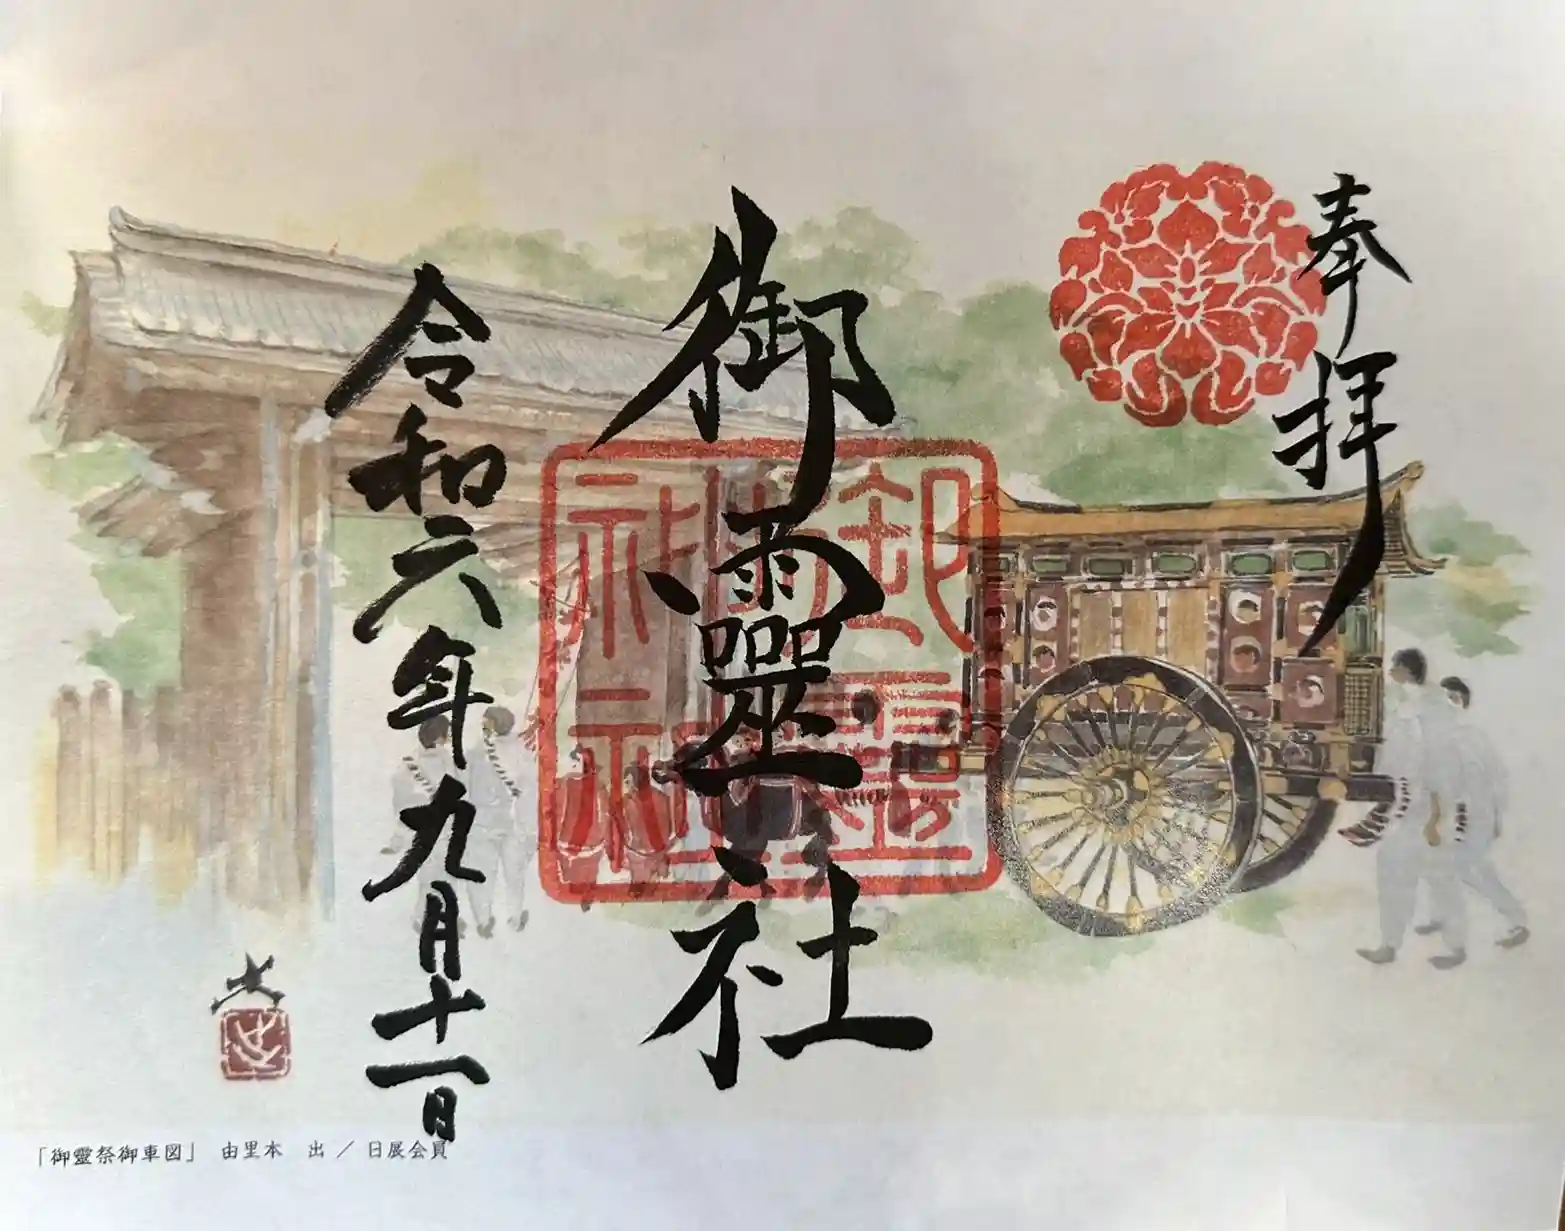 奉拝
御靈社
御霊神社
令和六年九月十一日
「御靈祭御車図」 由里本 出 / 日展会員